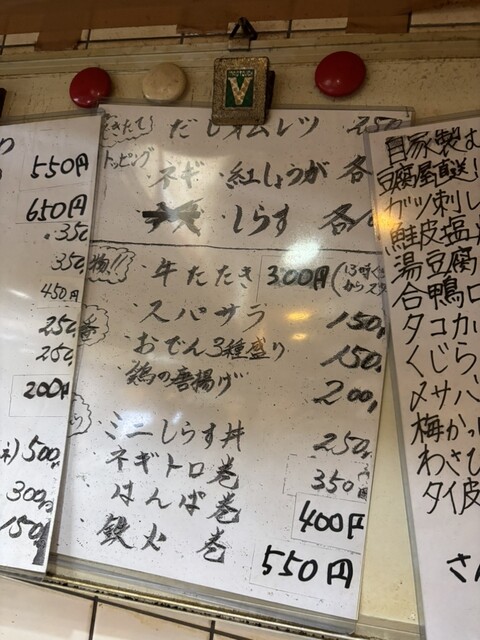 V
550円
650円
350
350
450円
250
250
200円
500
300円
150
できたて
だしオムレツ 250
トッピング
ネギ・紅しょうが 各
しらす 各
物!!
牛たたき 300円
スパサラ 150
おでん3種盛り 150
鶏の唐揚げ 200
ミニしらす丼 250
ネギトロ巻 350
はんぱ巻 400円
鉄火巻 550円
自家製
豆腐屋直送
ガツ刺し
鮭皮塩
湯豆腐
合鴨ロ
タコか
くじら
〆サバ
梅かっ
わさび
タイ皮
さん